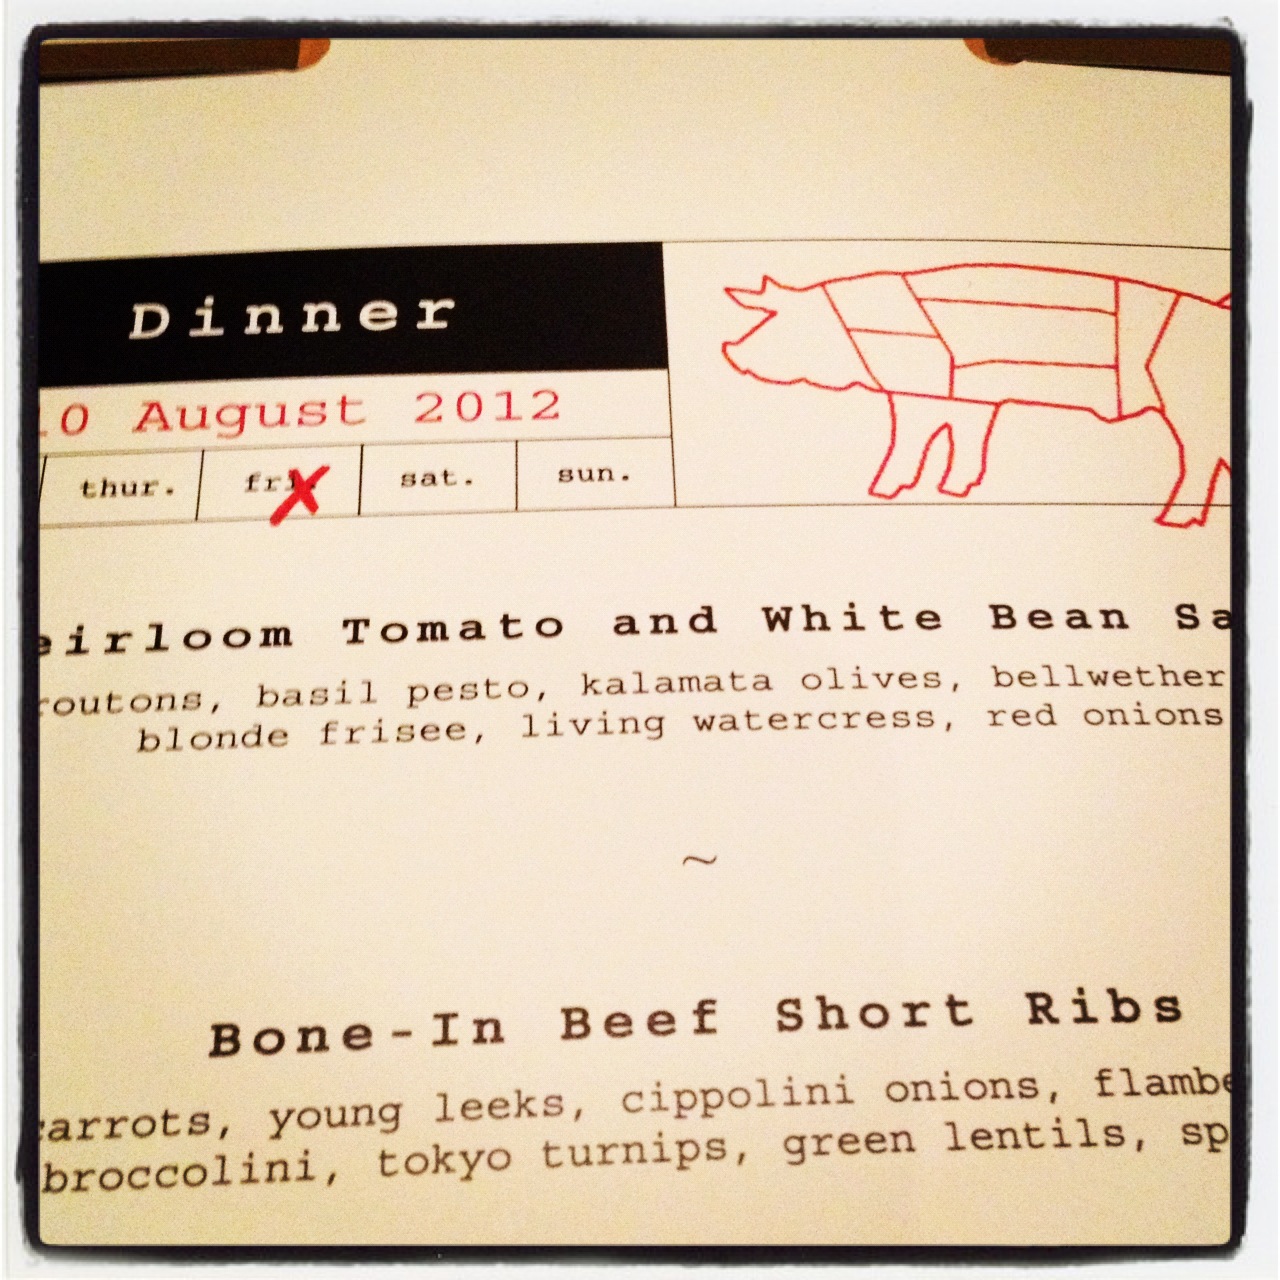 Dinner
10 August 2012
thur. fri. sat. sun.
eirloom Tomato and White Bean Sa
routons, basil pesto, kalamata olives, bellwether
blonde frisee, living watercress, red onions
~
Bone-In Beef Short Ribs
carrots, young leeks, cippolini onions, flambe
broccolini, tokyo turnips, green lentils, sp